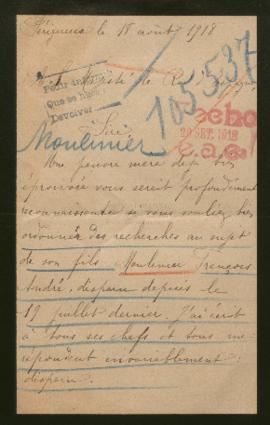 le 18 août 1918
Majesté le Roi
Pedir informe
Que se haga
Devolver
105537
Fecho
20 SET. 1918
Sire,
Moulinier
Une pauvre mère déjà bien
éprouvée vous serait profondément
reconnaissante si vous vouliez bien
ordonner des recherches au sujet
de son fils Moulinier François
André, disparu depuis le
19 juillet dernier. J'ai écrit
à tous ses chefs et tous me
répondent invariablement :
disparu.